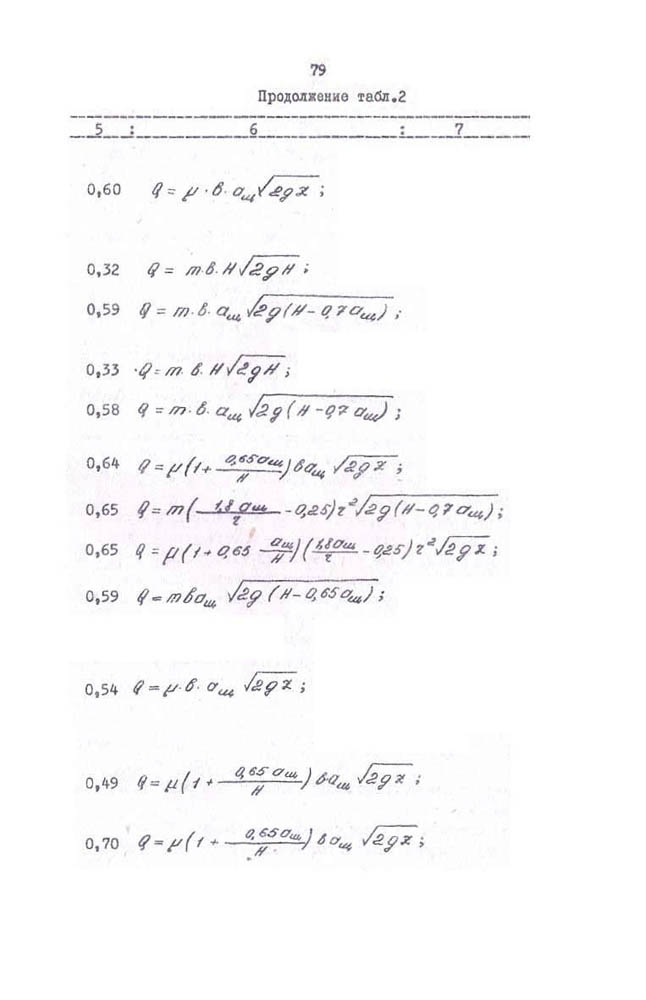 79
Продолжение табл.2
5 : 6 : 7
0,60 Q = μ · в · aщ √2gz ;
0,32 Q = m · в · H √2gH ;
0,59 Q = m · в · aщ √2g(H − 0,7 aщ) ;
0,33 Q = m · в · H √2gH ;
0,58 Q = m · в · aщ √2g(H − 0,7 aщ) ;
0,64 Q = μ(1 + 0,65 aщ/H) в aщ √2gz ;
0,65 Q = m(1,8 aщ/r − 0,25) r² √2g(H − 0,7 aщ) ;
0,65 Q = μ(1 + 0,65 aщ/H)(1,8 aщ/r − 0,25) r² √2gz ;
0,59 Q = m в aщ √2g(H − 0,65 aщ) ;
0,54 Q = μ · в · aщ √2gz ;
0,49 Q = μ(1 + 0,65 aщ/H) в · aщ √2gz ;
0,70 Q = μ(1 + 0,65 aщ/H) в aщ √2gz ;